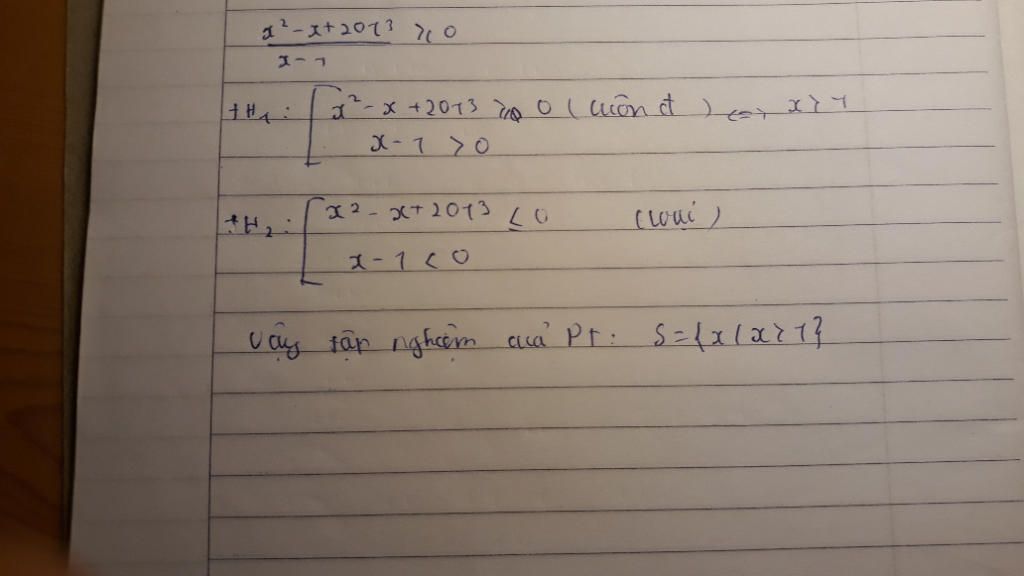 x² - x + 2013 ≥ 0
x - 1
TH₁: [ x² - x + 2013 ≥ 0 (luôn đ) <=> x > 1
x - 1 > 0
TH₂: [ x² - x + 2013 ≤ 0 (loại)
x - 1 < 0
Vậy tập nghiệm của PT: S = {x / x > 1}